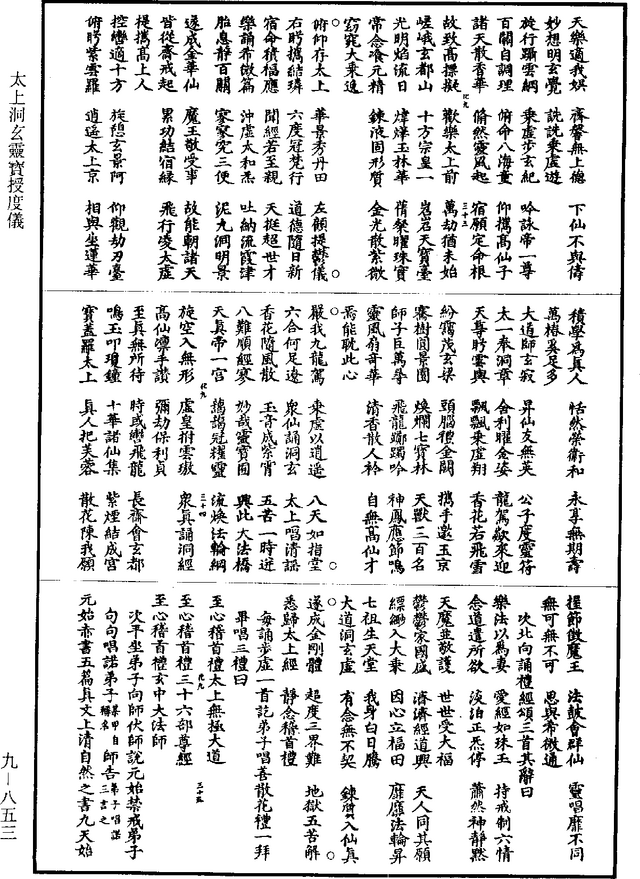 天樂適我娛　齊馨無上德　下仙不與儔
妙想明玄覺　詵詵乘虛遊
旋行躡雲綱　乘虛步玄紀　吟詠帝一尊
百關自調理　俯命八海童　仰攜高仙子
諸天散香華　翛然靈風起　宿願定命根
故致高摽擬　歡樂太上前　萬劫猶未始
嵯峨玄都山　十方宗皇一　岧岧天寶臺
光明焰流日　煒燁玉林華　蒨粲曜珠實
常念飡元精　鍊液固形質　金光散紫微
窈窕大乘逸
俯仰存太上　華景秀丹田　左顧提鬱儀
右眄攜結璘　六度冠梵行　道德隨日新
宿命積福應　聞經若至親　天挺超世才
樂誦希微篇　沖虛太和炁　吐納流霞津
胎息靜百關　寥寥究三便　泥丸洞明景
遂成金華仙　魔王敬受事　故能朝諸天
皆從齋戒起　累功結宿緣　飛行凌太虛
提攜高上人
控轡適十方　旋憩玄景阿　仰觀劫刃臺
俯眄紫雲羅　逍遙太上京　相與坐蓮華
積學為真人　恬然榮衛和　永享無期壽
萬椿奚足多
大道師玄寂　昇仙友無英　公子度靈符
太一奉洞章　舍利曜金姿　龍駕欻來迎
天尊眄雲輿　飄飄乘虛翔　香花若飛雪
紛靄茂玄梁　頭腦禮金闕　攜手遨玉京
騫樹圓景園　煥爛七寶林　天獸三百名
師子巨萬尋　飛龍躑躅吟　神鳳應節鳴
靈風扇奇華　清香散人衿　自無高仙才
焉能耽此心
嚴我九龍駕　乘虛以逍遙　八天如指掌
六合何足遼　眾仙誦洞玄　太上唱清謠
香花隨風散　玉音成紫霄　五苦一時迸
八難順經寥　妙哉靈寶囿　興此大法橋
天真帝一宮　藹藹冠耀靈　流煥法輪綱
旋空入無形　虛皇拊雲璈　眾真誦洞經
高仙彈手讚　彌劫保利貞
至真無所待　時或轡飛龍　長齋會玄都
鳴玉叩瓊鐘　十華諸仙集　紫煙結成宮
寶蓋羅太上　真人把芙蓉　散花陳我願
握節徵魔王　法鼓會群仙　靈唱靡不同
無可無不可　思與希微通
次北向誦禮經頌三首其辭曰
樂法以為妻　愛經如珠玉　持戒制六情
念道遣所欲　淡泊正炁停　蕭然神靜默
天魔並敬護　世世受大福
鬱鬱家國盛　濟濟經道興　天人同其願
縹緲入大乘　因心立福田　靡靡法輪昇
七祖生天堂　我身白日騰
大道洞玄虛　有念無不契　鍊質入仙真
遂成金剛體　超度三界難　地獄五苦解
悉歸太上經　靜念稽首禮
每誦步虛一首訖弟子唱善散花禮一拜
畢唱三禮曰
至心稽首禮太上無極大道
至心稽首禮三十六部尊經
至心稽首禮玄中大法師
次平坐弟子向師伏師說元始禁戒弟子
句句唱諾弟子某甲自稱名　師告弟子唱諾三言之
元始赤書五篇真文上清自然之書九天始
太上洞玄靈寶授度儀
九－八五三